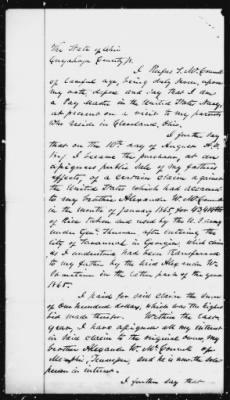 The State of Ohio
Cuyahoga County ss.
I Rufus S. McConnell
of lawful age being duly sworn, upon
my oath, depose and say that I am
a Pay Master in the United States Navy,
at present on a visit to my parents
who reside in Cleveland, Ohio.
I further say
that on the 10th day of August A.D.
I became the purchaser at an
assignees public sale of my father's
effects, of a certain claim against
the United States which had accrued
to my brother Alexander W. McConnell
in the month of January 1865, for
of Rice taken and used by the U.S. Army
under Genl Sherman after entering the
City of Savannah in Georgia, which claim
as I understand had been transferred
to my father, by the said Alexander W.
Sometime in the latter part of the year
1865.
I paid for said claim the sum
of one hundred dollars, which was the highest
bid made therefor. Within the last
year, I have assigned all my interest
in said claim to the original owner, my
brother Alexander W. McConnell of
Memphis, Tennessee, and he is now the sole
person in interest.
I further say that